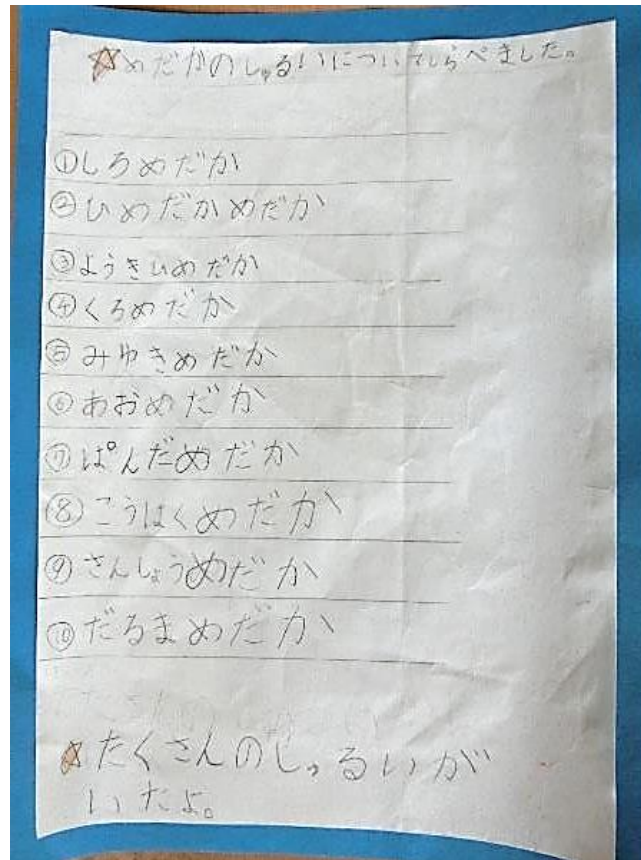 ☆めだかのしゅるいについてしらべました。
①しろめだか
②ひめだかめだか
③ようきひめだか
④くろめだか
⑤みゆきめだか
⑥あおめだか
⑦ぱんだめだか
⑧こうはくめだか
⑨さんしょうめだか
⑩だるまめだか
☆たくさんのしゅるいが
いたよ。